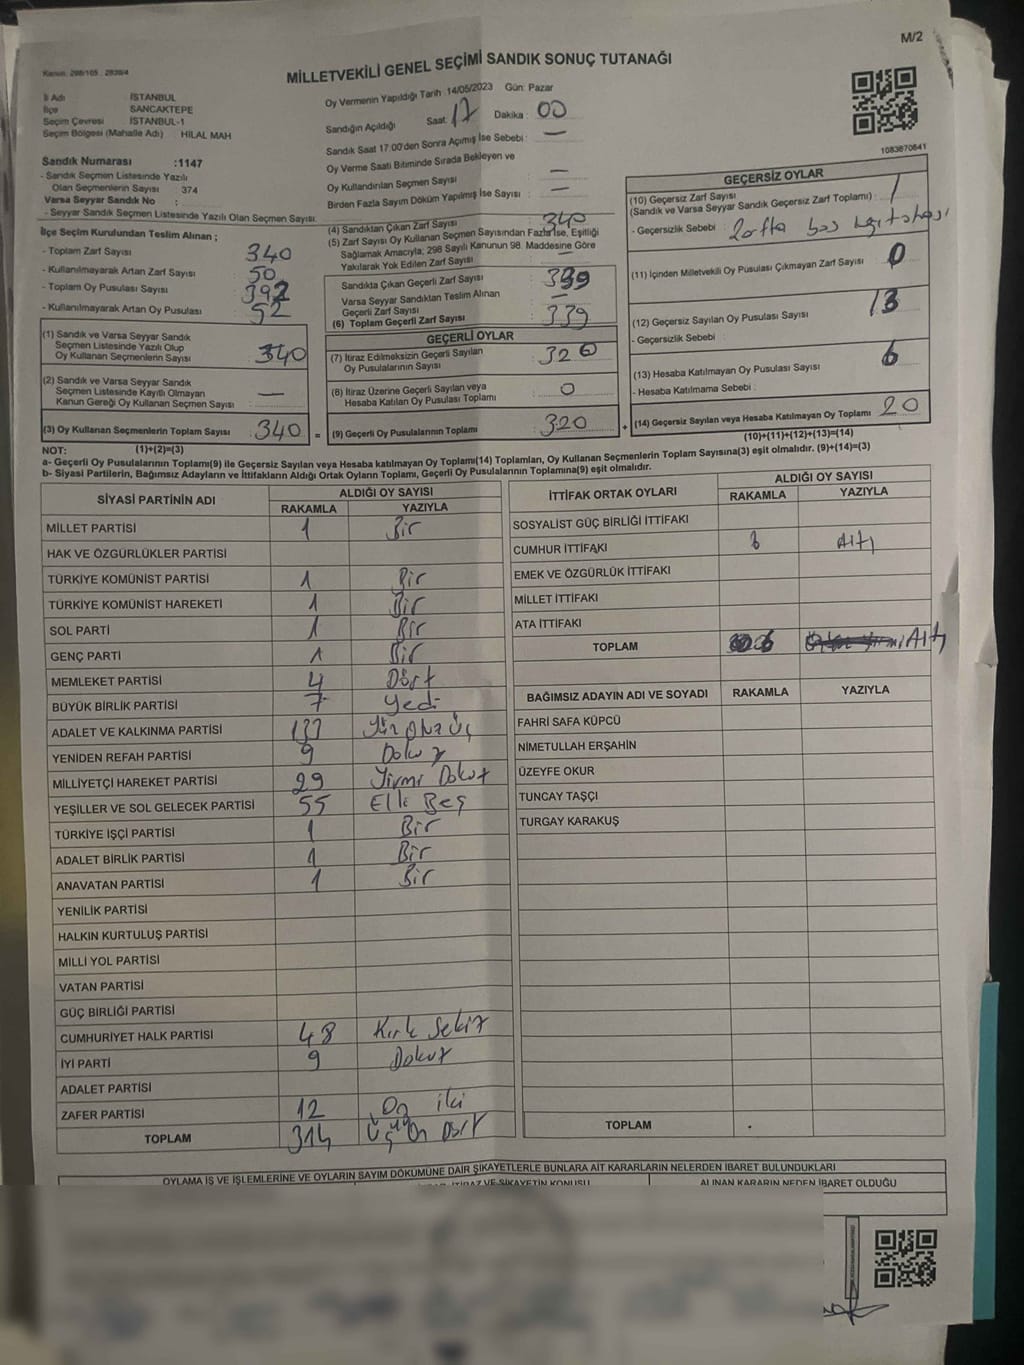 M/2
Kanun: 298/105 , 2839/4
MİLLETVEKİLİ GENEL SEÇİMİ SANDIK SONUÇ TUTANAĞI
İl Adı İSTANBUL
İlçe SANCAKTEPE
Seçim Çevresi İSTANBUL-1
Seçim Bölgesi (Mahalle Adı) HİLAL MAH
Sandık Numarası :1147
- Sandık Seçmen Listesinde Yazılı
Olan Seçmenlerin Sayısı : 374
Varsa Seyyar Sandık No :
- Seyyar Sandık Seçmen Listesinde Yazılı Olan Seçmen Sayısı:
Oy Vermenin Yapıldığı Tarih :14/05/2023 Gün: Pazar
Sandığın Açıldığı Saat: 17 Dakika : 00
Sandık Saat 17:00'den Sonra Açımış İse Sebebi : —
Oy Verme Saati Bitiminde Sırada Bekleyen ve
Oy Kullandırılan Seçmen Sayısı : —
Birden Fazla Sayım Döküm Yapılmış İse Sayısı : —
1083870841
İlçe Seçim Kurulundan Teslim Alınan ;
- Toplam Zarf Sayısı : 340
- Kullanılmayarak Artan Zarf Sayısı : 50
- Toplam Oy Pusulası Sayısı : 392
- Kullanılmayarak Artan Oy Pusulası : 52
(1) Sandık ve Varsa Seyyar Sandık
Seçmen Listesinde Yazılı Olup
Oy Kullanan Seçmenlerin Sayısı : 340
(2) Sandık ve Varsa Seyyar Sandık
Seçmen Listesinde Kayıtlı Olmayan
Kanun Gereği Oy Kullanan Seçmen Sayısı : —
(3) Oy Kullanan Seçmenlerin Toplam Sayısı : 340
(4) Sandıktan Çıkan Zarf Sayısı : 340
(5) Zarf Sayısı Oy Kullanan Seçmen Sayısından Fazla İse, Eşitliği
Sağlamak Amacıyla, 298 Sayılı Kanunun 98. Maddesine Göre
Yakılarak Yok Edilen Zarf Sayısı : —
Sandıkta Çıkan Geçerli Zarf Sayısı : 339
Varsa Seyyar Sandıktan Teslim Alınan
Geçerli Zarf Sayısı : —
(6) Toplam Geçerli Zarf Sayısı : 339
GEÇERLİ OYLAR
(7) İtiraz Edilmeksizin Geçerli Sayılan
Oy Pusulalarının Sayısı : 320
(8) İtiraz Üzerine Geçerli Sayılan veya
Hesaba Katılan Oy Pusulası Toplamı : 0
= (9) Geçerli Oy Pusulalarının Toplamı : 320
GEÇERSİZ OYLAR
(10) Geçersiz Zarf Sayısı : 1
(Sandık ve Varsa Seyyar Sandık Geçersiz Zarf Toplamı)
- Geçersizlik Sebebi :
(11) İçinden Milletvekili Oy Pusulası Çıkmayan Zarf Sayısı : 0
(12) Geçersiz Sayılan Oy Pusulası Sayısı : 13
- Geçersizlik Sebebi :
(13) Hesaba Katılmayan Oy Pusulası Sayısı : 6
- Hesaba Katılmama Sebebi :
+ (14) Geçersiz Sayılan veya Hesaba Katılmayan Oy Toplamı : 20
NOT: (1)+(2)=(3) (10)+(11)+(12)+(13)=(14)
a- Geçerli Oy Pusulalarının Toplamı(9) ile Geçersiz Sayılan veya Hesaba katılmayan Oy Toplamı(14) Toplamları, Oy Kullanan Seçmenlerin Toplam Sayısına(3) eşit olmalıdır. (9)+(14)=(3)
b- Siyasi Partilerin, Bağımsız Adayların ve İttifakların Aldığı Ortak Oyların Toplamı, Geçerli Oy Pusulalarının Toplamına(9) eşit olmalıdır.
SİYASİ PARTİNİN ADI ALDIĞI OY SAYISI
RAKAMLA YAZIYLA
MİLLET PARTİSİ 1 Bir
HAK VE ÖZGÜRLÜKLER PARTİSİ
TÜRKİYE KOMÜNİST PARTİSİ 1 Bir
TÜRKİYE KOMÜNİST HAREKETİ 1 Bir
SOL PARTİ 1 Bir
GENÇ PARTİ 1 Bir
MEMLEKET PARTİSİ 4 Dört
BÜYÜK BİRLİK PARTİSİ 7 Yedi
ADALET VE KALKINMA PARTİSİ 133 Yüz Otuz Üç
YENİDEN REFAH PARTİSİ 9 Dokuz
MİLLİYETÇİ HAREKET PARTİSİ 29 Yirmi Dokuz
YEŞİLLER VE SOL GELECEK PARTİSİ 55 Elli Beş
TÜRKİYE İŞÇİ PARTİSİ 1 Bir
ADALET BİRLİK PARTİSİ 1 Bir
ANAVATAN PARTİSİ 1 Bir
YENİLİK PARTİSİ
HALKIN KURTULUŞ PARTİSİ
MİLLİ YOL PARTİSİ
VATAN PARTİSİ
GÜÇ BİRLİĞİ PARTİSİ
CUMHURİYET HALK PARTİSİ 48 Kırk Sekiz
İYİ PARTİ 9 Dokuz
ADALET PARTİSİ
ZAFER PARTİSİ 12 On iki
TOPLAM 314 Üç yüz On Dört
İTTİFAK ORTAK OYLARI ALDIĞI OY SAYISI
RAKAMLA YAZIYLA
SOSYALİST GÜÇ BİRLİĞİ İTTİFAKI
CUMHUR İTTİFAKI 6 Altı
EMEK VE ÖZGÜRLÜK İTTİFAKI
MİLLET İTTİFAKI
ATA İTTİFAKI
TOPLAM 6 Altı
BAĞIMSIZ ADAYIN ADI VE SOYADI RAKAMLA YAZIYLA
FAHRİ SAFA KÜPCÜ
NİMETULLAH ERŞAHİN
ÜZEYFE OKUR
TUNCAY TAŞÇI
TURGAY KARAKUŞ
TOPLAM
OYLAMA İŞ VE İŞLEMLERİNE VE OYLARIN SAYIM DÖKÜMÜNE DAİR ŞİKAYETLERLE BUNLARA AİT KARARLARIN NELERDEN İBARET BULUNDUKLARI
İTİRAZ VE ŞİKAYETİN KONUSU ALINAN KARARIN NEDEN İBARET OLDUĞU